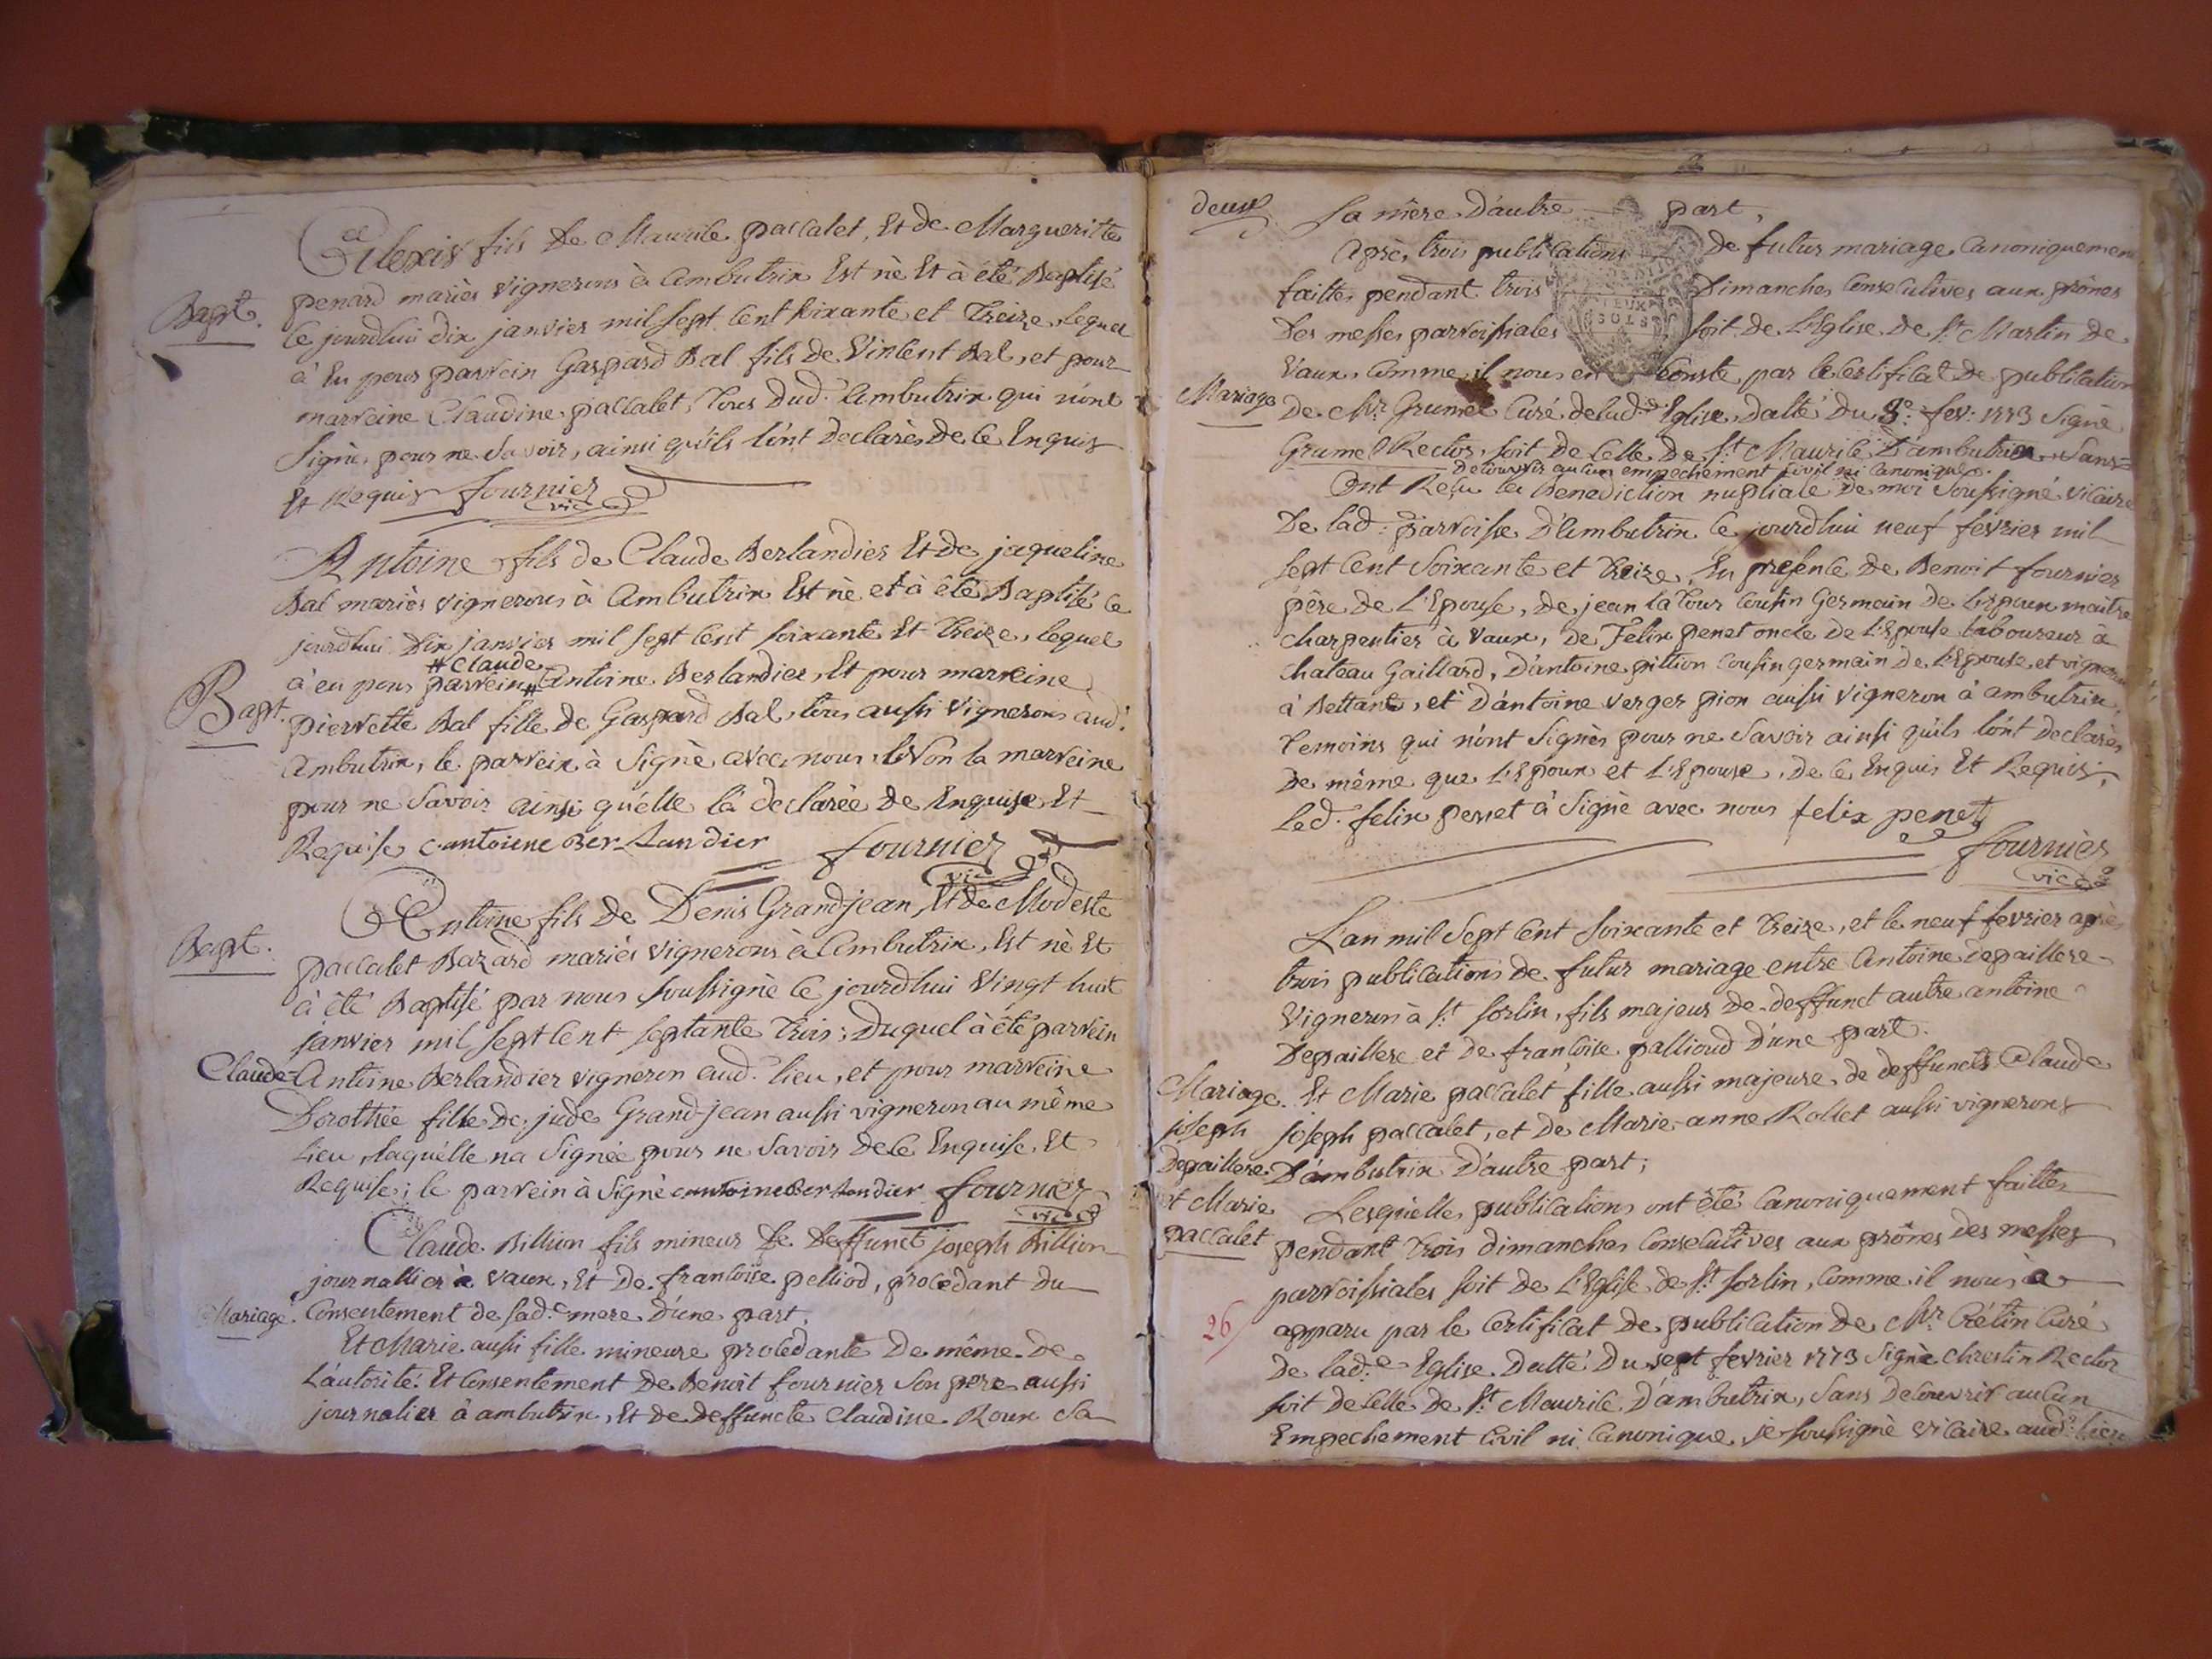 Alexis fils de Maurice paccalet, Et de Margueritte
Bapt. penard mariés vignerons à Ambutrix Est nè Et à été Baptisé
ce jourdhui dix janvier mil sept cent soixante et treize, lequel
à Eu pour parrein Gaspard Bal fils de Vincent Bal, et pour
marreine Claudine paccalet, tous dud. Ambutrix qui n'ont
signè, pour ne savoir, ainsi qu'ils l'ont declarès, de ce Enquis
Et Requis fournier
vic
Antoine fils de Claude Berlandier Et de jaqueline
Bal mariès vignerons à Ambutrix Est nè et à été Baptisé ce
jourdhui Dix janvier mil sept cent soixante Et treize, lequel
# Claude
à eu pour parrein # Antoine Berlandier, Et pour marreine
Bapt. pierrette Bal fille de Gaspard Bal, tous aussi vignerons aud.
Ambutrix, le parrein à signè avec nous, Et non la marreine
pour ne savoir ainsi qu'elle l'à declarée de Enquise Et
Requise antoiene Ber landier fournier
vic
Antoine fils de Denis Grandjean, Et de Modeste
Bapt. paccalet Bazard mariés vignerons à Ambutrix, Est nè Et
à été Baptisé par nous soussignè ce jourdhui vingt huit
janvier mil sept cent septante trois; duquel à été parrein
Claude-Antoine Berlandier vigneron aud. lieu, et pour marreine
Dorothée fille de jude Grand-jean aussi vigneron au même
lieu, laquélle na signée pour ne savoir de ce Enquise, Et
Requise; le parrein à signè antoine Ber landier fournier
vic
Claude Billion fils mineur de deffunct joseph Billion
journallier à vaux, Et de francoise pelliod, procedant du
Mariage. Consentement de sad.e mere d'une part,
Et Marie aussi fille mineure procedante de même de
L'autorité Et consentement de Benoit fournier son pere aussi
journalier à ambutrix, Et de deffuncte Claudine Roux sa
deux sa mère d'autre part,
Aprè, trois publications de futur mariage Canoniquement
faittes pendant trois Dimanches consecutives aux prônes
Des messes parroissiales soit de L'Eglise de St Martin de
DEUX
SOLS
Vaux, comme il nous en conste par le certificat de publication
Mariage De Mr Grumel Curé deladde Eglise datté du 8e fev: 1773 signè
Grumel Rector, soit de celle de St Maurice d'ambutrix Sans
decouvrir aucun empechement civil ni canonique.
Ont Reçu la Benediction nuptiale de moi soussigné vicaire
De lad: parroisse d'Ambutrix le jourdhui neuf fevrier mil
sept cent soixante et treize, En presence de Benoit fournier
père de L'Epouse, de jean la Tour cousin Germain de L'Epoux maitre
charpentier à Vaux, de Felix penet oncle de L'Epouse laboureur à
chateau Gaillard, d'antoine pittion cousin germain de L'Epouse, et vigneron
à Bettant, et d'antoine verger pion aussi vigneron à ambutrix,
temoins qui n'ont signès pour ne savoir ainsi qu'ils l'ont declarès
de même que L'Epoux et L'Epouse, de ce Enquis Et Requis,
Led. felix penet à signè avec nous felix penet
fournier
vic
L'an mil sept cent soixante et treize, et le neuf fevrier après
trois publications de futur mariage entre Antoine depaillere
vigneron à St sorlin, fils majeur de deffunct autre antoine
Depaillere et de francoise pallioud d'une part.
Mariage. Et Marie paccalet fille aussi majeure de deffuncts Claude
joseph joseph paccalet, et de Marie-anne Rollet aussi vignerons
Depaillere D'ambutrix d'autre part;
et Marie Lesquelles publications ont été canoniquement faittes
paccalet pendant trois dimanches consecutives aux prônes des messes
parroissiales soit de L'Eglise de St sorlin, comme il nous à
26 apparu par le certificat de publication de Mr Crétin Curé
De lad.e Eglise datté du sept fevrier 1773 signè Chrestin Rector
soit de celle de St Maurice d'ambutrix, sans decouvrir aucun
Empechement civil ni canonique, je soussignè vicaire aud: lieu